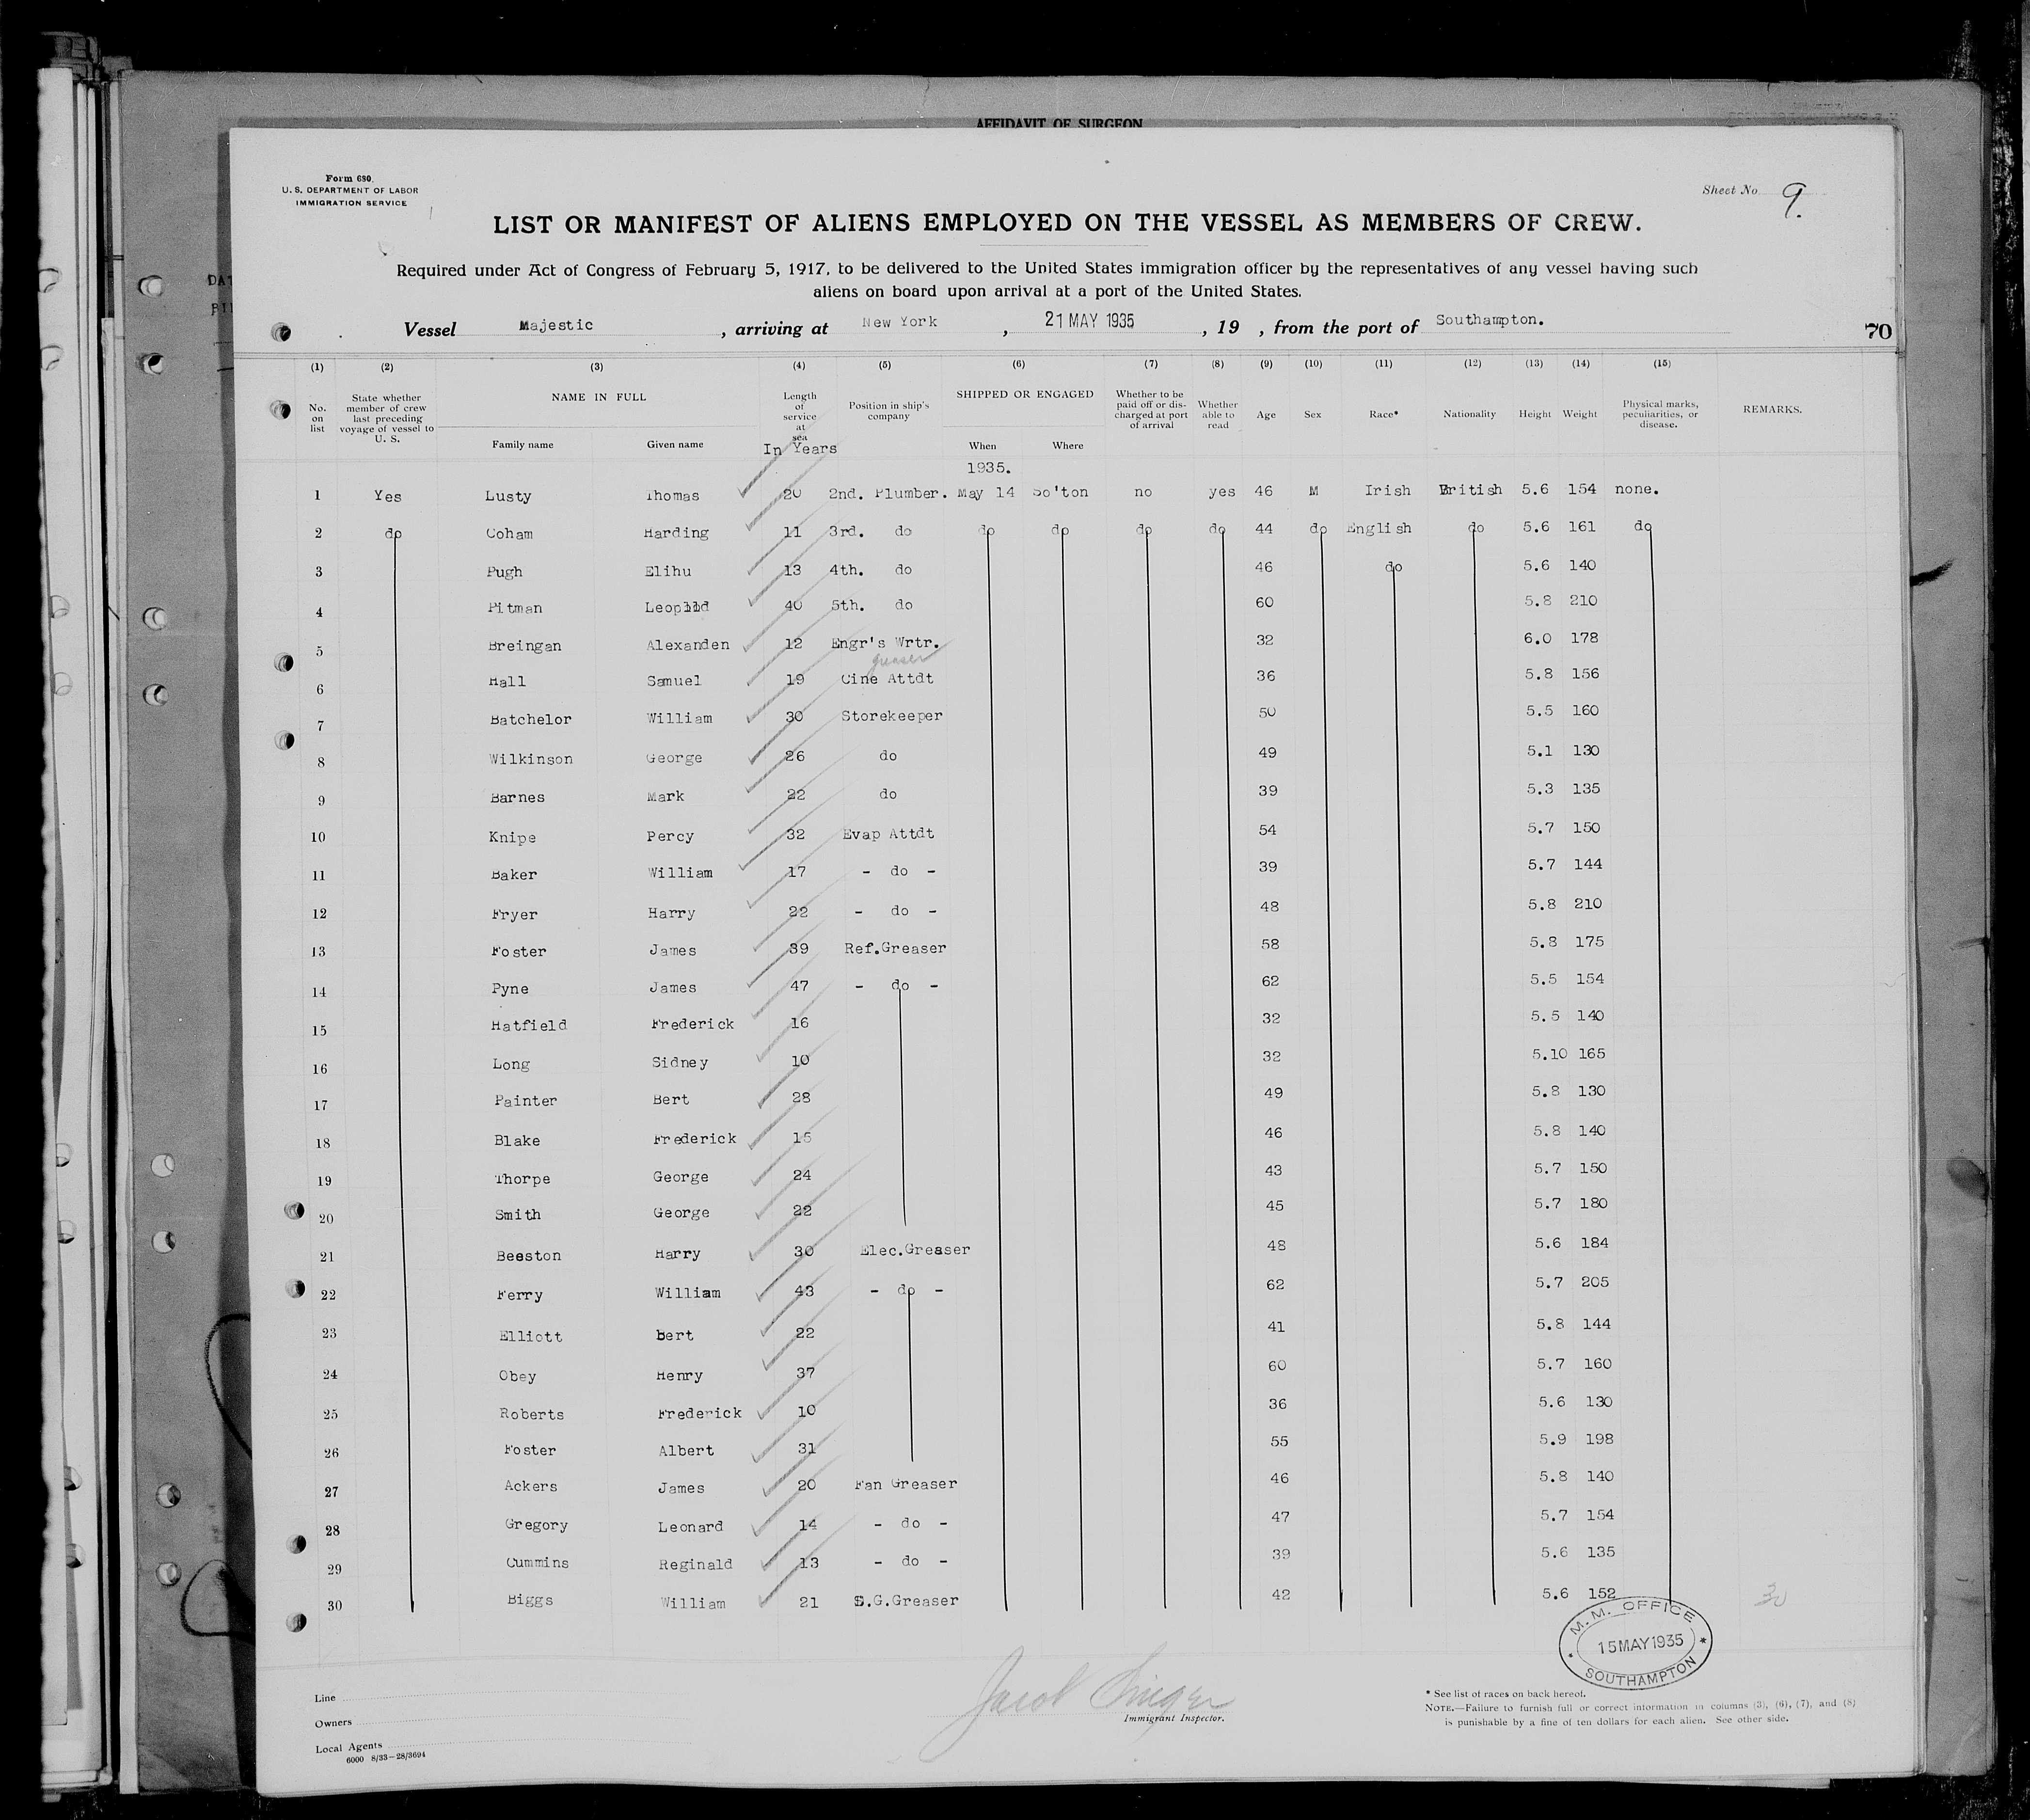 AFFIDAVIT OF SURGEON
Form 680.
U. S. DEPARTMENT OF LABOR
IMMIGRATION SERVICE
Sheet No 9.
LIST OR MANIFEST OF ALIENS EMPLOYED ON THE VESSEL AS MEMBERS OF CREW.
Required under Act of Congress of February 5, 1917, to be delivered to the United States immigration officer by the representatives of any vessel having such
aliens on board upon arrival at a port of the United States.
Vessel Majestic , arriving at New York , 21 MAY 1935 , 19 , from the port of Southampton.
70
(1) (2) (3) (4) (5) (6) (7) (8) (9) (10) (11) (12) (13) (14) (15)
No. on list State whether member of crew last preceding voyage of vessel to U. S. NAME IN FULL Family name Given name Length of service at sea In Years Position in ship's company SHIPPED OR ENGAGED When Where Whether to be paid off or discharged at port of arrival Whether able to read Age Sex Race* Nationality Height Weight Physical marks, peculiarities, or disease. REMARKS.
1935.
1 Yes Lusty Thomas 20 2nd. Plumber. May 14 So'ton no yes 46 M Irish British 5.6 154 none.
2 do Coham Harding 11 3rd. do do do do do 44 do English do 5.6 161 do
3 Pugh Elihu 13 4th. do 46 do 5.6 140
4 Pitman Leoplld 40 5th. do 60 5.8 210
5 Breingan Alexanden 12 Engr's Wrtr. 32 6.0 178
greaser
6 Hall Samuel 19 Cine Attdt 36 5.8 156
7 Batchelor William 30 Storekeeper 50 5.5 160
8 Wilkinson George 26 do 49 5.1 130
9 Barnes Mark 22 do 39 5.3 135
10 Knipe Percy 32 Evap Attdt 54 5.7 150
11 Baker William 17 - do - 39 5.7 144
12 Fryer Harry 22 - do - 48 5.8 210
13 Foster James 39 Ref.Greaser 58 5.8 175
14 Pyne James 47 - do - 62 5.5 154
15 Hatfield Frederick 16 32 5.5 140
16 Long Sidney 10 32 5.10 165
17 Painter Bert 28 49 5.8 130
18 Blake Frederick 15 46 5.8 140
19 Thorpe George 24 43 5.7 150
20 Smith George 22 45 5.7 180
21 Beeston Harry 30 Elec.Greaser 48 5.6 184
22 Ferry William 43 - do - 62 5.7 205
23 Elliott bert 22 41 5.8 144
24 Obey Henry 37 60 5.7 160
25 Roberts Frederick 10 36 5.6 130
26 Foster Albert 31 55 5.9 198
27 Ackers James 20 Fan Greaser 46 5.8 140
28 Gregory Leonard 14 - do - 47 5.7 154
29 Cummins Reginald 13 - do - 39 5.6 135
30 Biggs William 21 S.G.Greaser 42 5.6 152
M. M. OFFICE
15 MAY 1935
SOUTHAMPTON
Line
Owners
Local Agents
6000 8/33—28/3694
Immigrant Inspector.
* See list of races on back hereof.
NOTE.—Failure to furnish full or correct information in columns (3), (6), (7), and (8)
is punishable by a fine of ten dollars for each alien. See other side.